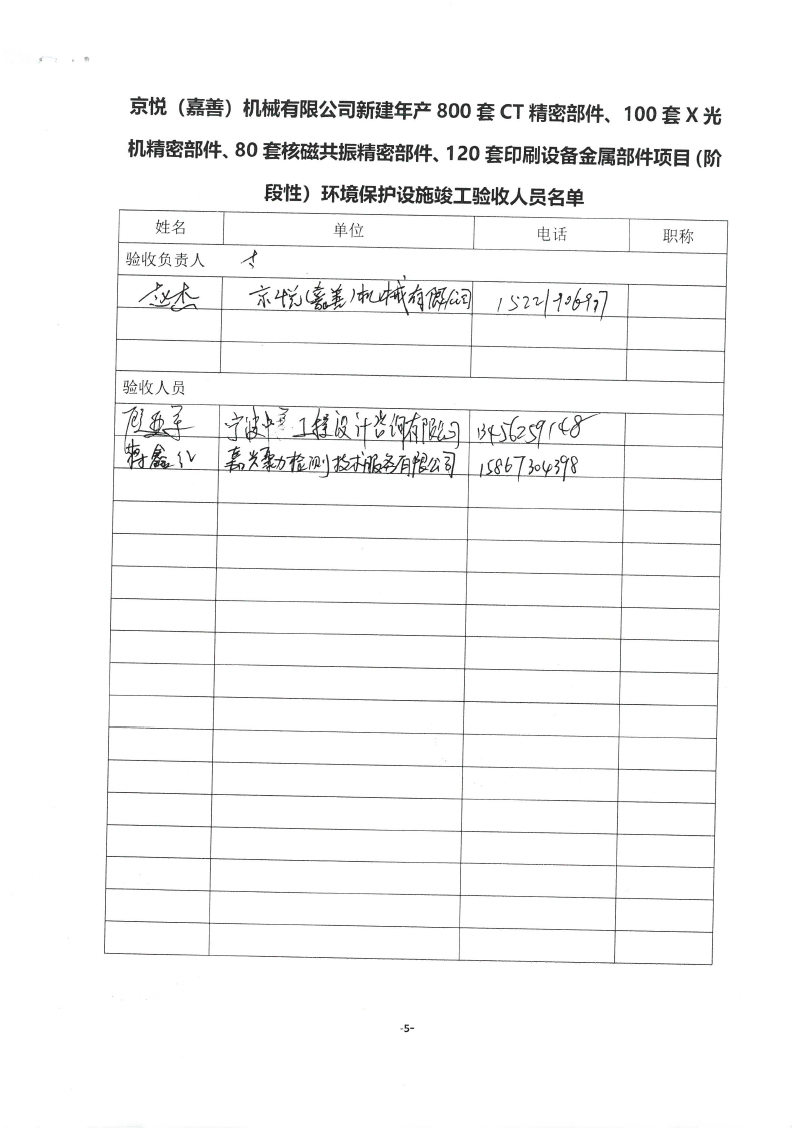 京悦（嘉善）机械有限公司新建年产 800 套 CT 精密部件、100 套 X 光
机精密部件、80 套核磁共振精密部件、120 套印刷设备金属部件项目（阶
段性）环境保护设施竣工验收人员名单
姓名 单位 电话 职称
验收负责人
赵杰 京悦（嘉善）机械有限公司
验收人员
宁波中 工程设计咨询有限公司 13456259148
蒋鑫红 嘉兴聚力检测技术服务有限公司 15867304398
-5-